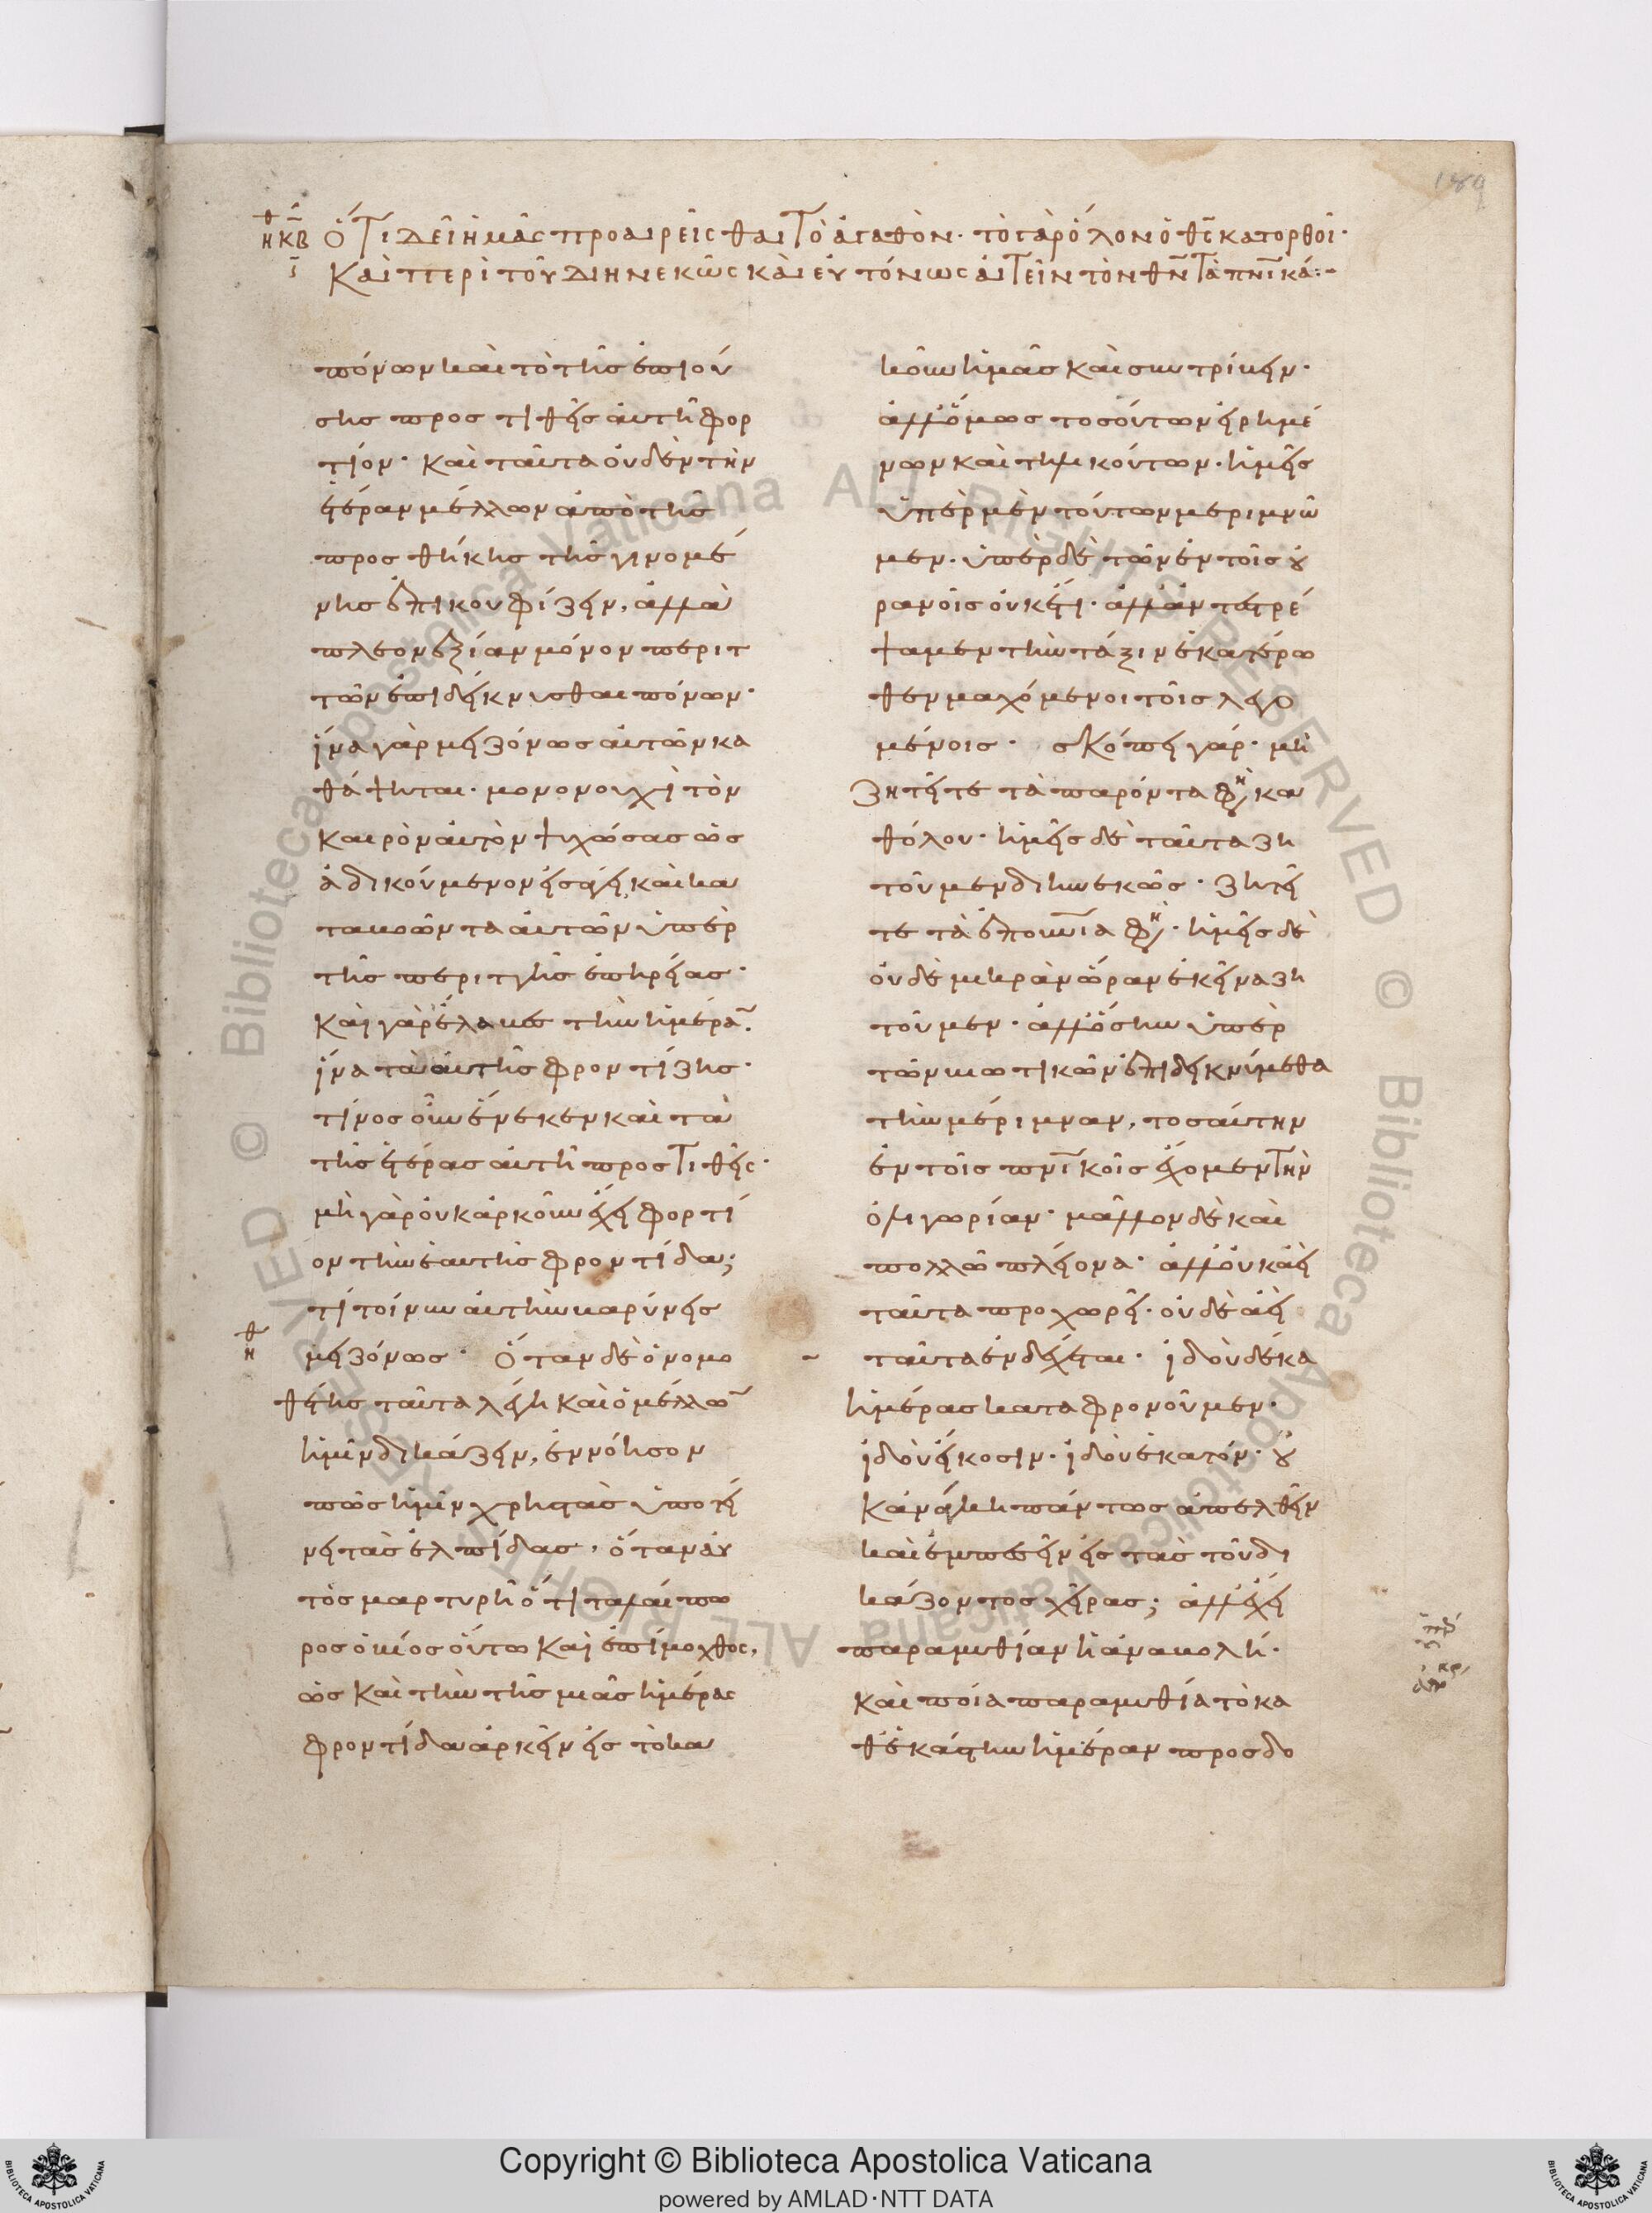 189
ἠθ κβ Ὅτι δεῖ ἡμᾶς προαιρεῖσθαι τὸ ἀγαθόν· τὸ γὰρ ὅλον ὁ θς κατορθοῖ·
Καὶ περὶ τοῦ διηνεκῶς καὶ εὐτόνως αἰτεῖν τὸν θν τὰ πνικά:-
πόνων καὶ τὸ τῆς ἐπιού
σης προς τιθεὶς αὐτῆ φορ
τίον· καὶ ταῦτα οὐδὲν τὴν
ἑτέραν μέλλων ἀπὸ τῆς
προσθήκης τῆς γινομέ
νης ἐπικουφίζειν, ἀλλὰ
πλεονεξίαν μόνον περιτ
τῶν ἐπιδείκνυσθαι πόνων·
ἵνα γὰρ μειζόνως αὐτῶν κα
θάψηται· μονονουχὶ τὸν
καιρὸν αὐτὸν ψυχώσας ὡς
ἀδικούμενον εἰσάγει καὶ κα
ταβοῶντα αὐτῶν ὑπὲρ
τῆς περιττῆς ἐπηρείας·
Καὶ γὰρ ἔλαβες τὴν ἡμέραν·
ἵνα τὰ αὐτῆς φροντίζης·
τίνος οὖν ἕνεκεν καὶ τὰ
τῆς ἑτέρας αὐτῆ προστιθεῖς·
μὴ γὰρ οὐκ ἀρκοῦν ἔχει φορτί
ον τὴν ἑαυτῆς φροντίδα;
τί τοίνυν αὐτὴν βαρύνεις
ἠθ μειζόνως· Ὅταν δὲ ὁ νομο
θέτης ταῦτα λέγη καὶ ὁ μέλλων
ἡμῖν δικάζειν, ἐννόησον
πῶς ἡμῖν χρηστὰς ὑποτεί
νει τὰς ἐλπίδας, ὅταν αὐ
τὸς μαρτυρῆ ὅτι ταλαίπω
ρος ὁ βίος οὕτω καὶ ἐπίμοχθος,
ὡς καὶ τὴν τῆς μιᾶς ἡμέρας
φροντίδα ἀρκεῖν εἰς τὸ κα
κοῦν ἡμᾶς καὶ συντρίβειν·
ἀλλ' ὅμως τοσούτων εἰρημέ
νων καὶ τηλικούτων· ἡμεῖς
ὑπὲρ μὲν τούτων μεριμνῶ
μεν· ὑπὲρ δὲ τῶν ἐν τοῖς οὐ
ρανοῖς οὐκέτι· ἀλλ' ἀντετρέ
ψαμεν τὴν τάξιν ἑκατέρω
θεν μαχόμενοι τοῖς λεγο
μένοις· σκόπει γάρ· μὴ
ζητεῖτε τὰ παρόντα φη κα
θόλου· ἡμεῖς δὲ ταῦτα ζη
τοῦμεν διηνεκῶς· ζητεῖ
τε τὰ ἐπουνια φη· ἡμεῖς δὲ
οὐδὲ μικρὰν ὥραν ἐκεῖνα ζη
τοῦμεν· ἀλλ' ὅσην ὑπὲρ
τῶν βιωτικῶν ἐπιδεικνύμεθα
τὴν μέριμναν, τοσαύτην
ἐν τοῖς πνικοῖς ἔχομεν τὴν
ὀλιγωρίαν· μᾶλλον δὲ καὶ
πολλῶ πλείονα· ἀλλ' οὐκ ἀεὶ
ταῦτα προχωρεῖ· οὐδὲ ἀεὶ
ταῦτα ἐνδέχεται· ἰδοὺ δέκα
ἡμέρας καταφρονοῦμεν·
ἰδοὺ εἴκοσιν· ἰδοὺ ἑκατόν· οὐ
κ ἀνάγκη πάντως ἀπελθεῖν
καὶ ἐμπεσεῖν εἰς τὰς τοῦ δι
κάζοντος χεῖρας; ἀλλ' ἔχει
παραμυθίαν ἡ ἀναβολή·
καὶ ποία παραμυθία τὸ κα
θ' ἑκάστην ἡμέραν προσδο
Copyright © Biblioteca Apostolica Vaticana
powered by AMLAD·NTT DATA